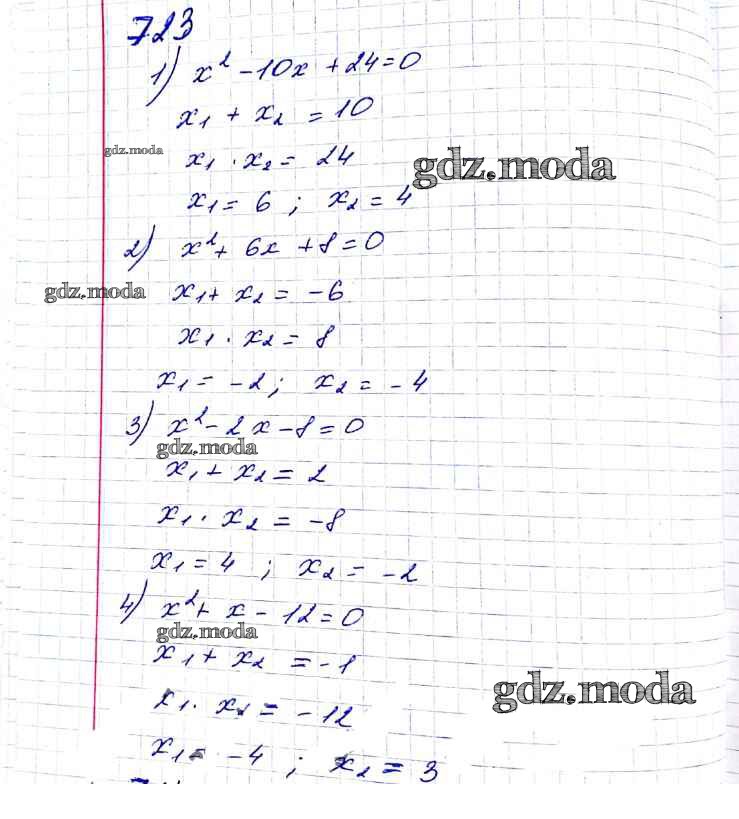 723
1) x² - 10x + 24 = 0
x₁ + x₂ = 10
gdz.moda
x₁ · x₂ = 24
gdz.moda
x₁ = 6 ; x₂ = 4
2) x² + 6x + 8 = 0
gdz.moda
x₁ + x₂ = -6
x₁ · x₂ = 8
x₁ = -2 ; x₂ = -4
3) x² - 2x - 8 = 0
gdz.moda
x₁ + x₂ = 2
x₁ · x₂ = -8
x₁ = 4 ; x₂ = -2
4) x² + x - 12 = 0
gdz.moda
x₁ + x₂ = -1
gdz.moda
x₁ · x₂ = -12
x₁ = -4 ; x₂ = 3